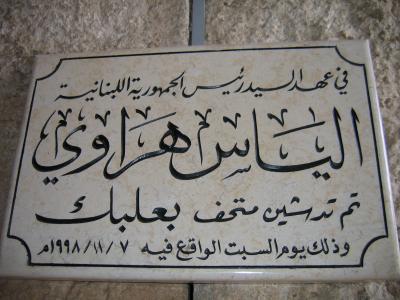 في عهد السيد رئيس الجمهورية اللبنانية
الياس هراوي
تم تدشين متحف بعلبك
وذلك يوم السبت الواقع فيه ٧ /١١/ ١٩٩٨م